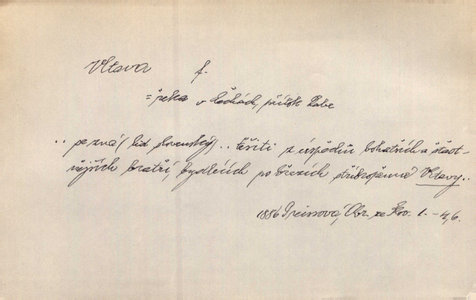 Vltava f.
= řeka v Čechách, přítok Labe
.. se zná (lid slovenský) .. těšiti z úspěchů bohatších a šťast-
nějších bratří, bydlících po březích stříbropěnné Vltavy ..
1886 Preissová, Obr. ze Slov. 1. – 4,6.